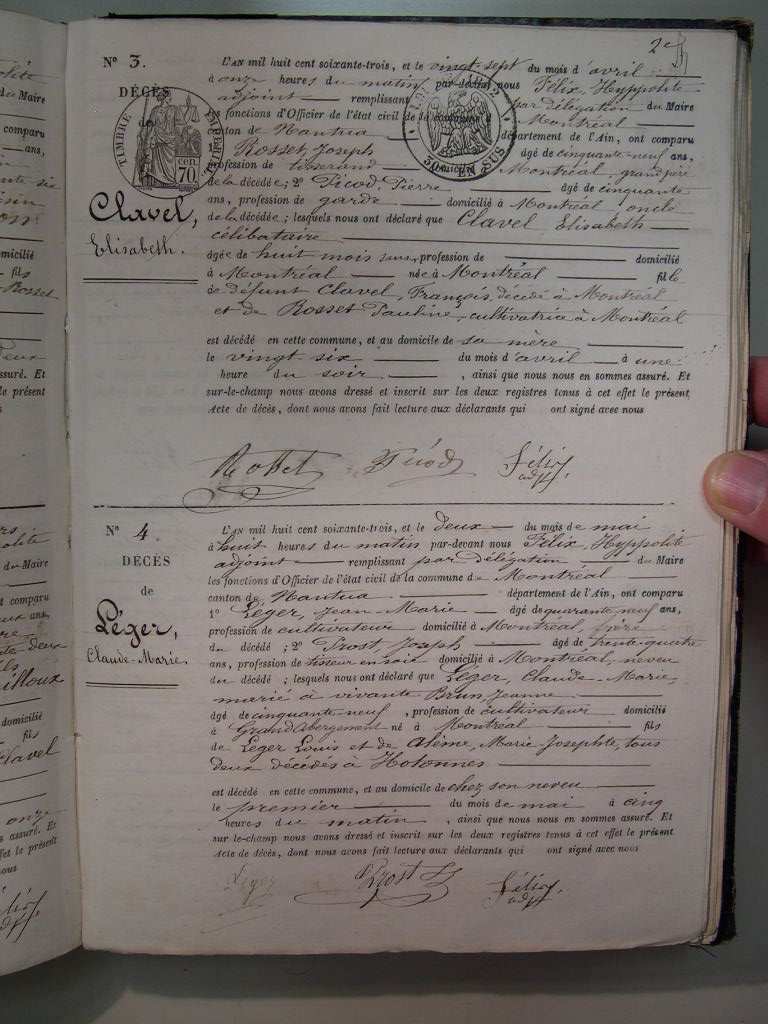 2e
N° 3.
DÉCÈS
de
Clavel,
Elisabeth.
TIMBRE IMPÉRIAL
70 cen.
30 EN SUS
L'AN mil huit cent soixante-trois, et le vingt sept du mois d'avril
à onze heures du matin par-devant nous Félix, Hyppolite
adjoint remplissant par délégation du Maire
les fonctions d'Officier de l'état civil de la commune de Montréal
canton de Nantua département de l'Ain, ont comparu
1° Rosset, Joseph âgé de cinquante-neuf ans,
profession de tisserand domicilié à Montréal, grand père
de la décédée; 2° Picod, Pierre âgé de cinquante
ans, profession de garde domicilié à Montréal oncle
de la décédée; lesquels nous ont déclaré que Clavel Elisabeth
célibataire
âgée de huit mois, profession de domicilié
à Montréal née à Montréal fille
de défunt Clavel, François, décédé à Montréal
et de Rosset Pauline, cultivatrice à Montréal
est décédé en cette commune, et au domicile de sa mère
le vingt six du mois d'avril à une
heure du soir, ainsi que nous nous en sommes assuré. Et
sur-le-champ nous avons dressé et inscrit sur les deux registres tenus à cet effet le présent
Acte de décès, dont nous avons fait lecture aux déclarants qui ont signé avec nous
Rosset Picod Félix
adjt.
N° 4.
DÉCÈS
de
Léger,
Claude-Marie.
L'AN mil huit cent soixante-trois, et le deux du mois de mai
à huit heures du matin par-devant nous Félix, Hyppolite
adjoint remplissant par délégation du Maire
les fonctions d'Officier de l'état civil de la commune de Montréal
canton de Nantua département de l'Ain, ont comparu
1° Léger, Jean Marie âgé de quarante neuf ans,
profession de cultivateur domicilié à Montréal, frère
du décédé; 2° Prost Joseph âgé de trente-quatre
ans, profession de tisseur en soie domicilié à Montréal, neveu
du décédé; lesquels nous ont déclaré que Léger, Claude-Marie,
marié à vivante Brun Jeanne
âgé de cinquante neuf, profession de cultivateur domicilié
à Grand Abergement né à Montréal fils
de Léger Louis et de Alème, Marie Josephte, tous
deux décédés à Hotonnes
est décédé en cette commune, et au domicile de chez son neveu
le premier du mois de mai à cinq
heures du matin, ainsi que nous nous en sommes assuré. Et
sur-le-champ nous avons dressé et inscrit sur les deux registres tenus à cet effet le présent
Acte de décès, dont nous avons fait lecture aux déclarants qui ont signé avec nous
Leger Prost Félix
adjt